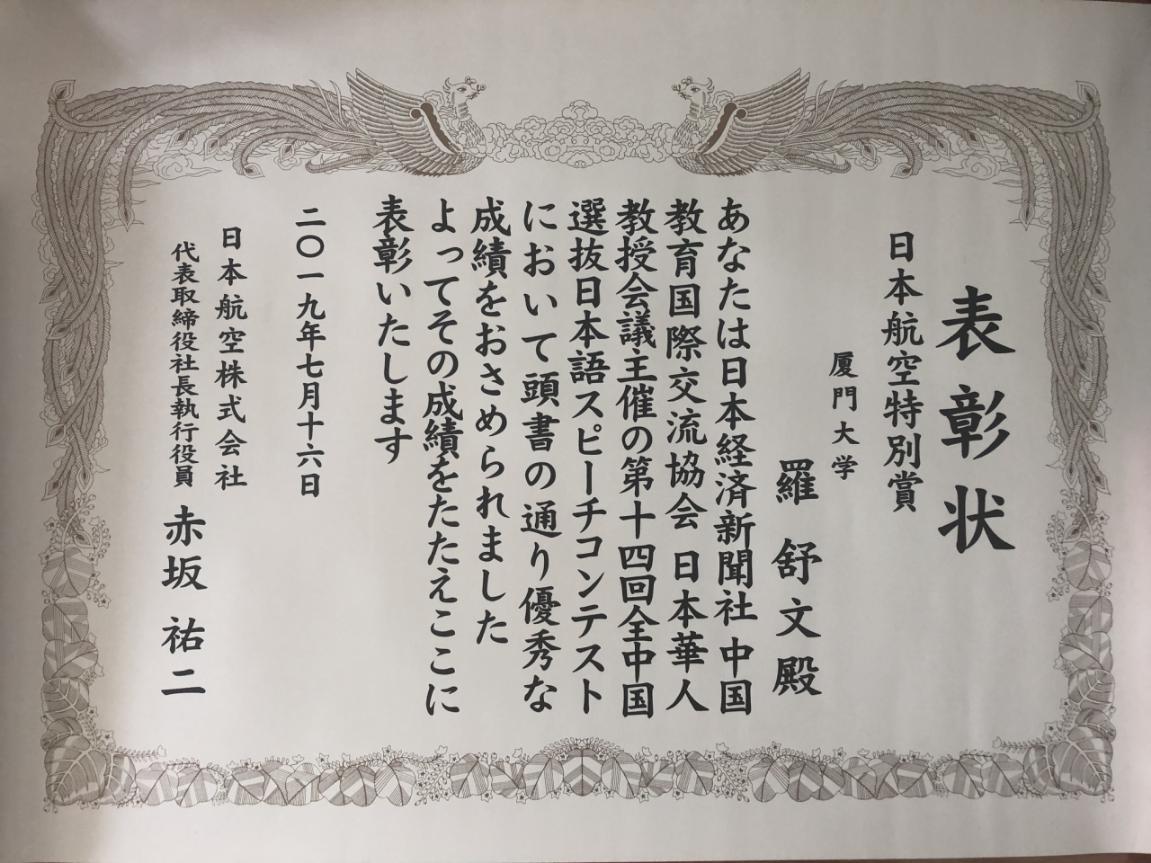 表彰状
日本航空特別賞
厦門大学
羅舒文殿
あなたは日本経済新聞社 中国
教育国際交流協会 日本華人
教授会議主催の第十四回全中国
選抜日本語スピーチコンテスト
において頭書の通り優秀な
成績をおさめられました
よってその成績をたたえここに
表彰いたします
二〇一九年七月十六日
日本航空株式会社
代表取締役社長執行役員 赤坂祐二